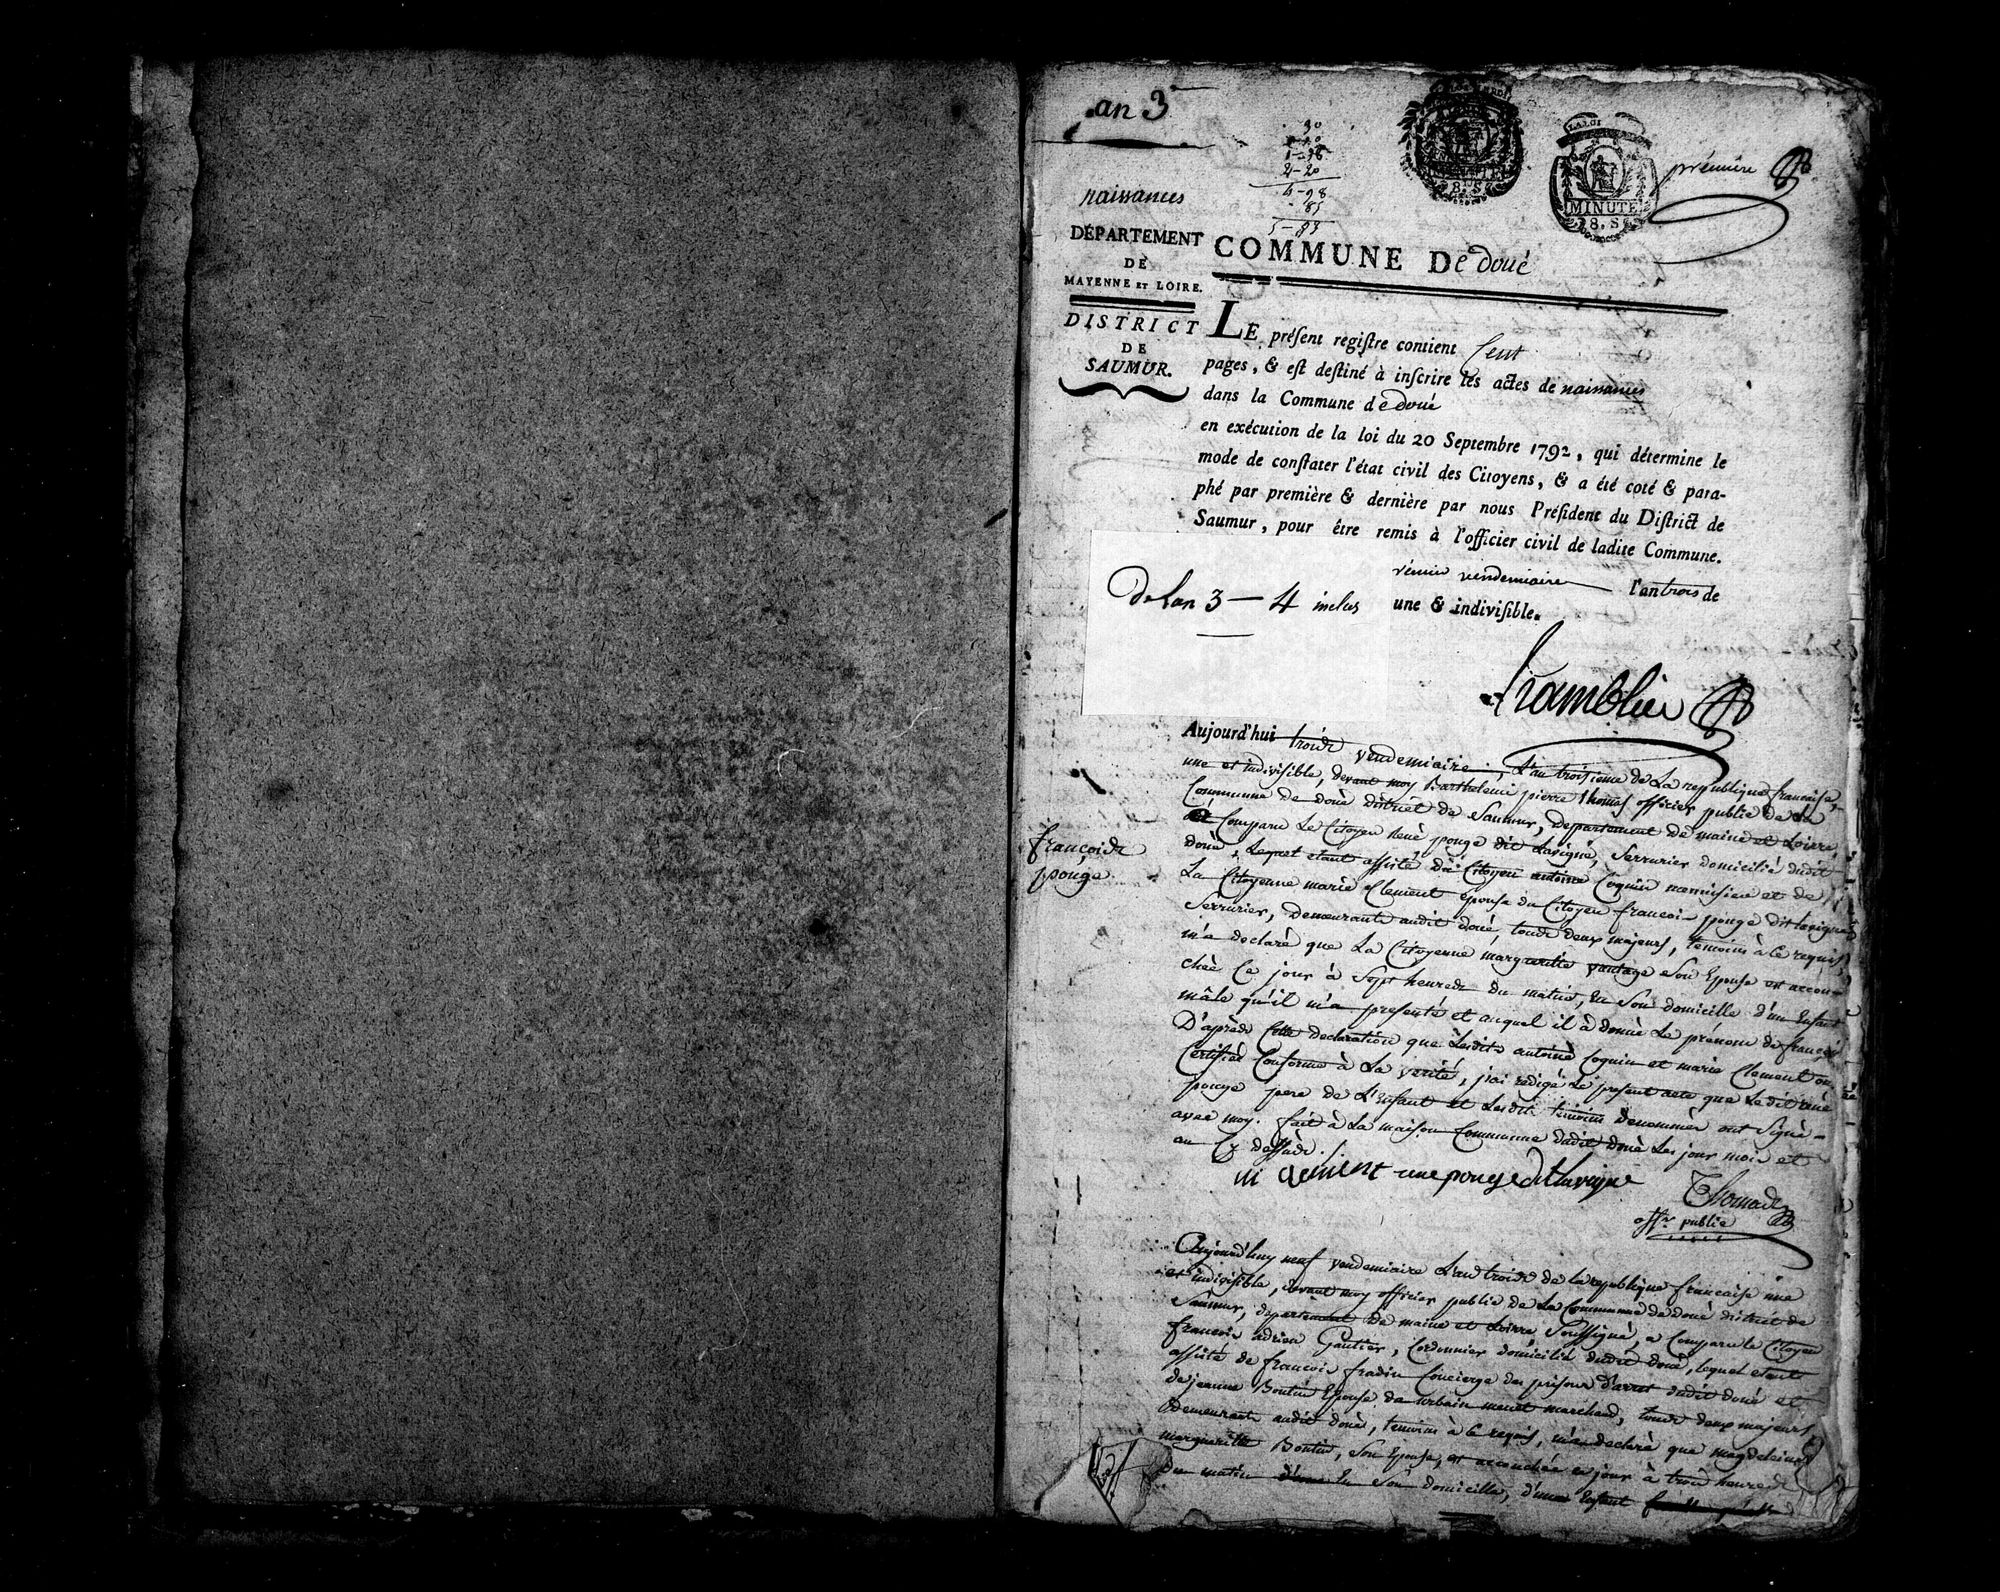 an 3
30
1-98
2-20
4-98
-85
5-83
LA LOI
MINUTE
8. S
MINUTE
8. S
prémiére
naissances
DÉPARTEMENT
DE
MAYENNE ET LOIRE.
DISTRICT
DE
SAUMUR.
COMMUNE De doué
LE préſent regiſtre contient Cent
pages, & eſt deſtiné à inſcrire les actes de naissances
dans la Commune de doué
en exécution de la loi du 20 Septembre 1792, qui détermine le
mode de conſtater l'état civil des Citoyens, & a été coté & para-
phé par première & dernière par nous Préſident du Diſtrict de
Saumur, pour être remis à l'officier civil de ladite Commune.
vendemiaire l'an trois de
une & indiviſible.
De lan 3 — 4 inclus
Aujourd'hui troids vendemiaire, L'an troisieme de La republique francaise,
une et indivisible, devant moy Barthelemi pierre thomas officier public de La
Commune de doué district de Saumur, departement de maine et Loirre,
est Comparu Le Citoyen René pouge dit Lavigne, Serrurier domicilié dudit
doué, Lequel etant assisté du Citoyen antoine Coquin menuisier et de
La Citoyenne marie Clement epouse du Citoyen francois pouge dit lavigne
Serrurier, demeurants audit doué, touds deux majeurs, temoins à ce requis,
m'a declaré que La Citoyenne margueritte vantage Son Epouse est accou-
chée Ce jour à Sept heureds du matin, En Son domicille d'un Enfant
mâle qu'il m'a presenté et auquel il à donné Le prénom de françois
D'aprèds Cette declaration que Lesdits antoine Coquin et marie Clement ont
Certifiés Conforme à La verité, j'ai redigé Le present acte que Ledit rené
pouge pere de L'Enfant et Lesdits temoins denommés ont Signé
avec moy. fait à La maison Commune dudit doué Les jour mois et
an Cy dessuds.
françoids
pouge.
m clement rene pouge dit lavigne
Thomas
offr. public
Aujourd'huy neuf vendemiaire L'an troids de la republique francaise une
et indivisible, devant moy officier public de La Commune de doué district de
Saumur, departement de maine et Loirre, Soussigné, a Comparu le Citoyen
francois adrien Gautier, Cordonnier domicilié dudit doué, lequel etant
assisté de francois fradin Concierge des prisons d'arret dudit doué et
de jeanne Boutin Epouse de urbain menet marchand, touds deux majeurs,
demeurants audit doué, temoins à ce requis, m'a declaré que magdeleine
margueritte Boutin, Son Epouse, est accouchée ce jour à trois heureds
du matin En Son domicille, d'un Enfant